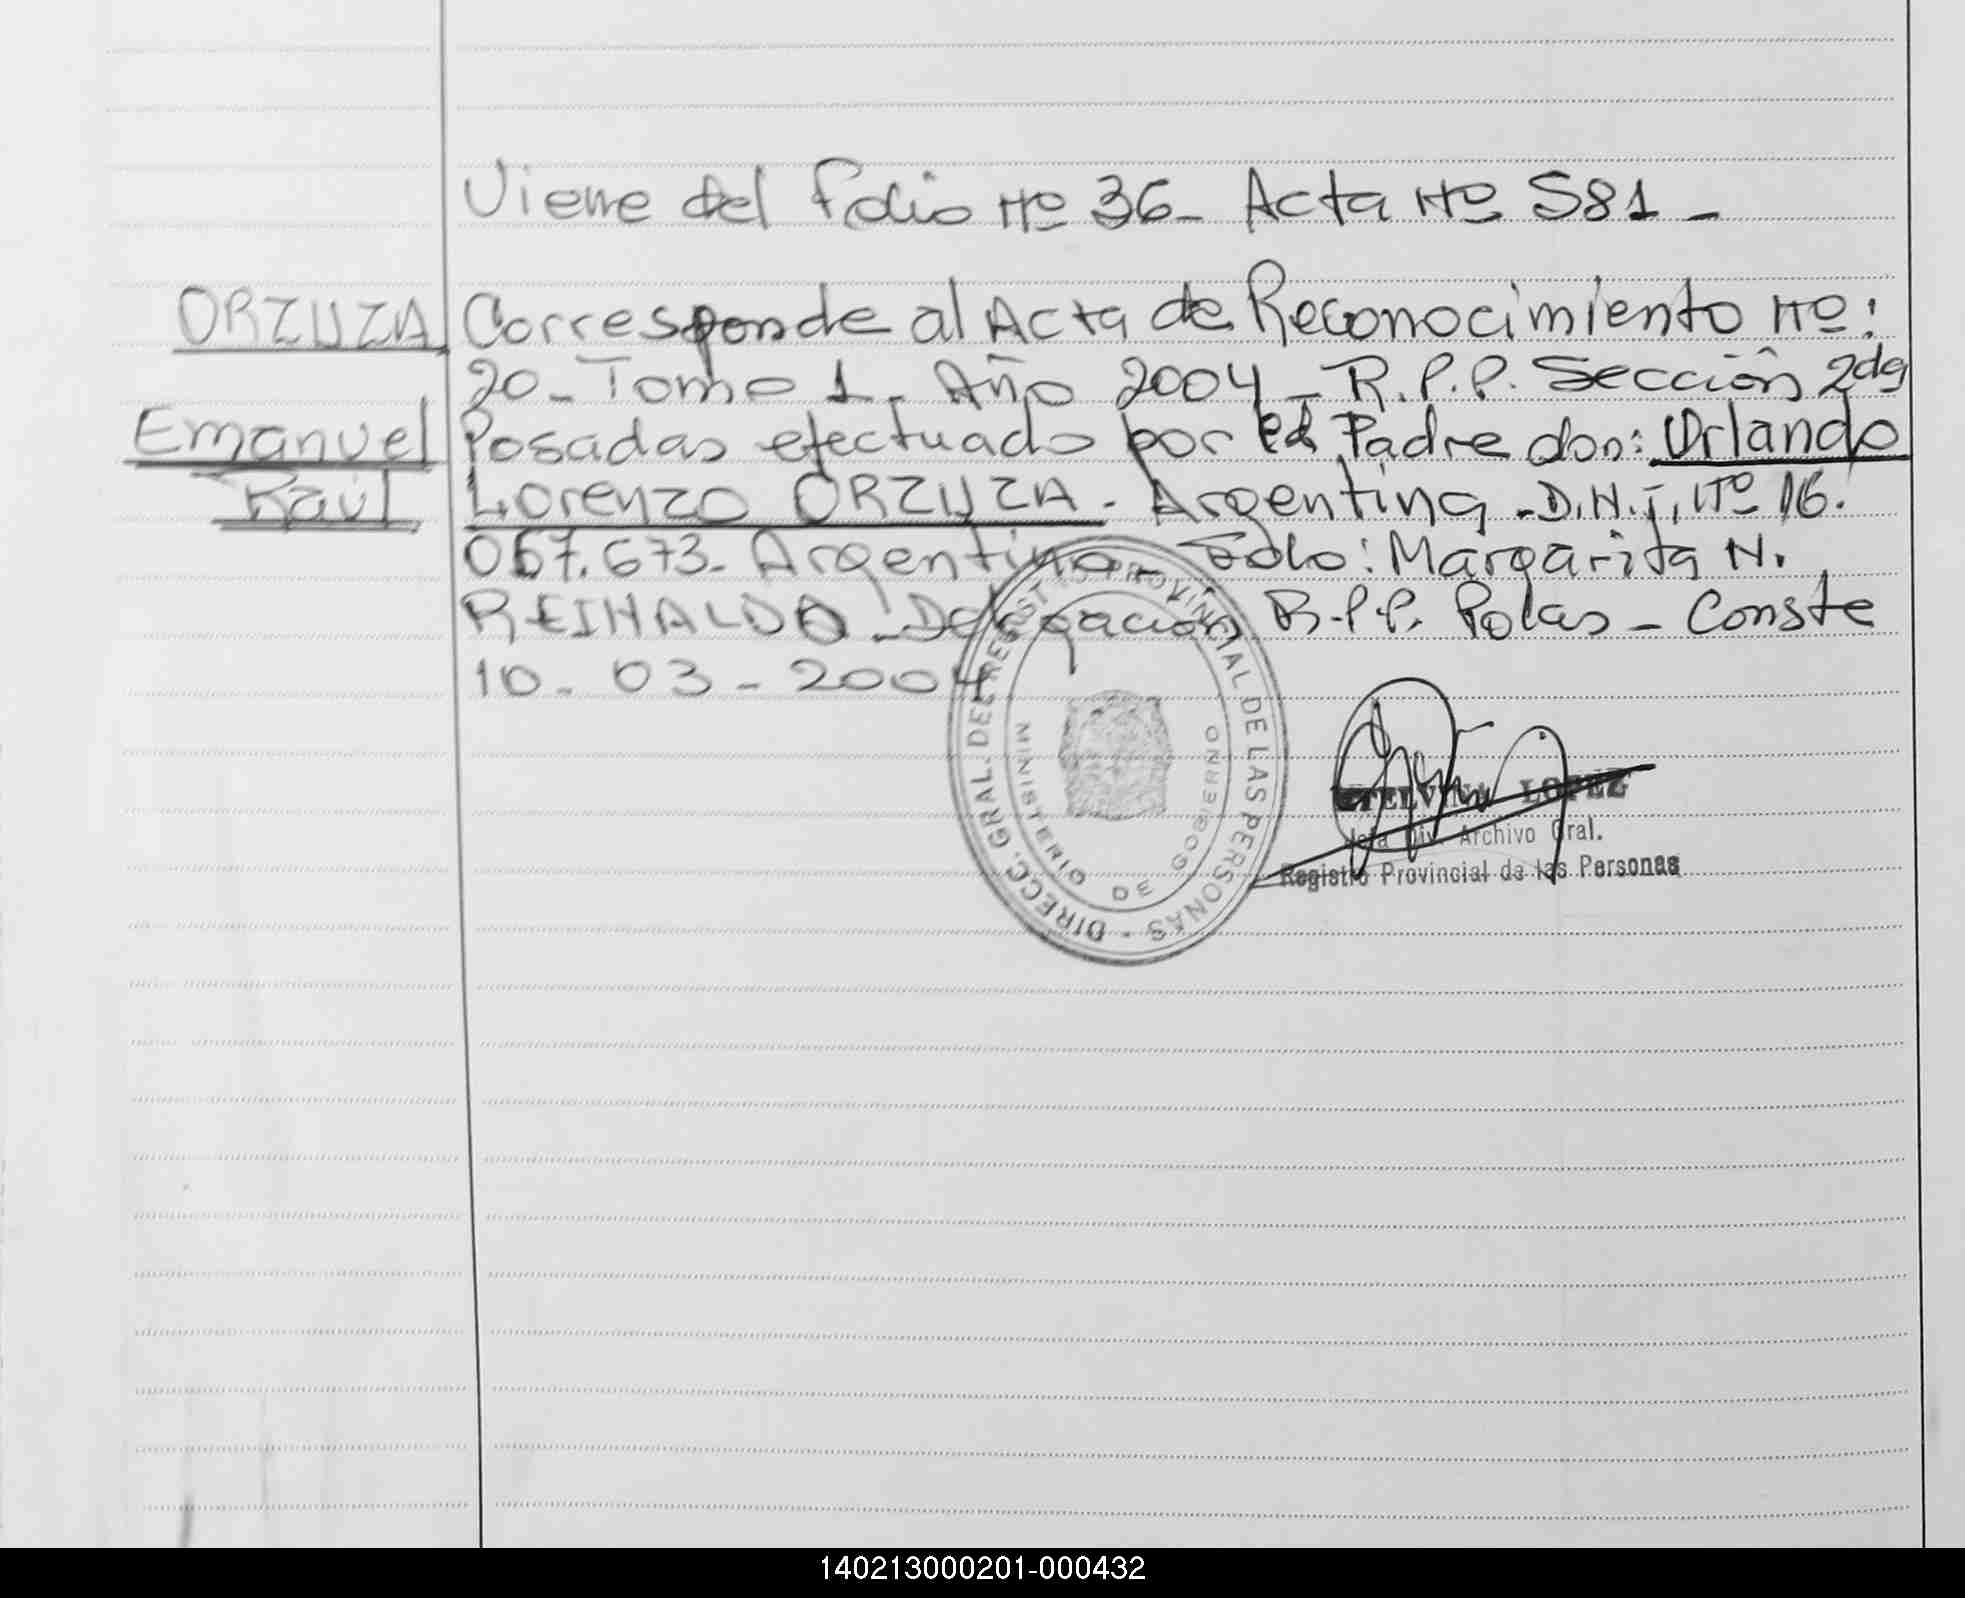 Viene del Folio Nº 36- Acta Nº 581-
ORZUZA Corresponde al Acta de Reconocimiento Nº:
20- Tomo 1- Año 2004- R.P.P. Sección 2da
Emanuel Posadas efectuado por el Padre don: Orlando
Raúl Lorenzo ORZUZA- Argentina- D.N.I. Nº 16.
067.673- Argentino- Fdo: Margarita N.
REINALDO- Delegación R.P.P. Polas- Conste
10-03-2004
DIRECC. GRAL. DEL REGISTRO PROVINCIAL DE LAS PERSONAS -
MINISTERIO DE GOBIERNO
ETELVINA LOPEZ
Jefa Div. Archivo Gral.
Registro Provincial de las Personas
140213000201-000432